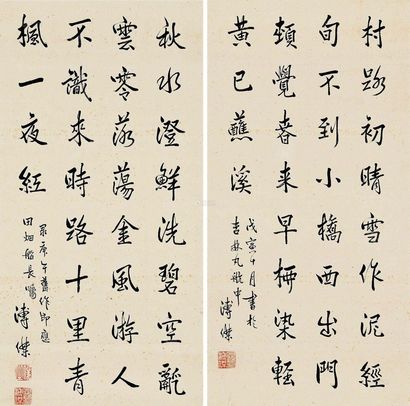 村路初晴雪作泥經
旬不到小橋西出門
頓覺春来早栁染輕
黄已蘸溪
戊寅十月書於
吉林丸舩中 溥傑
秋水澄鮮洗碧空亂
雲零落蕩金風游人
不識来時路十里青
楓一夜紅
录庚午舊作即應
田畑船長囑 溥傑